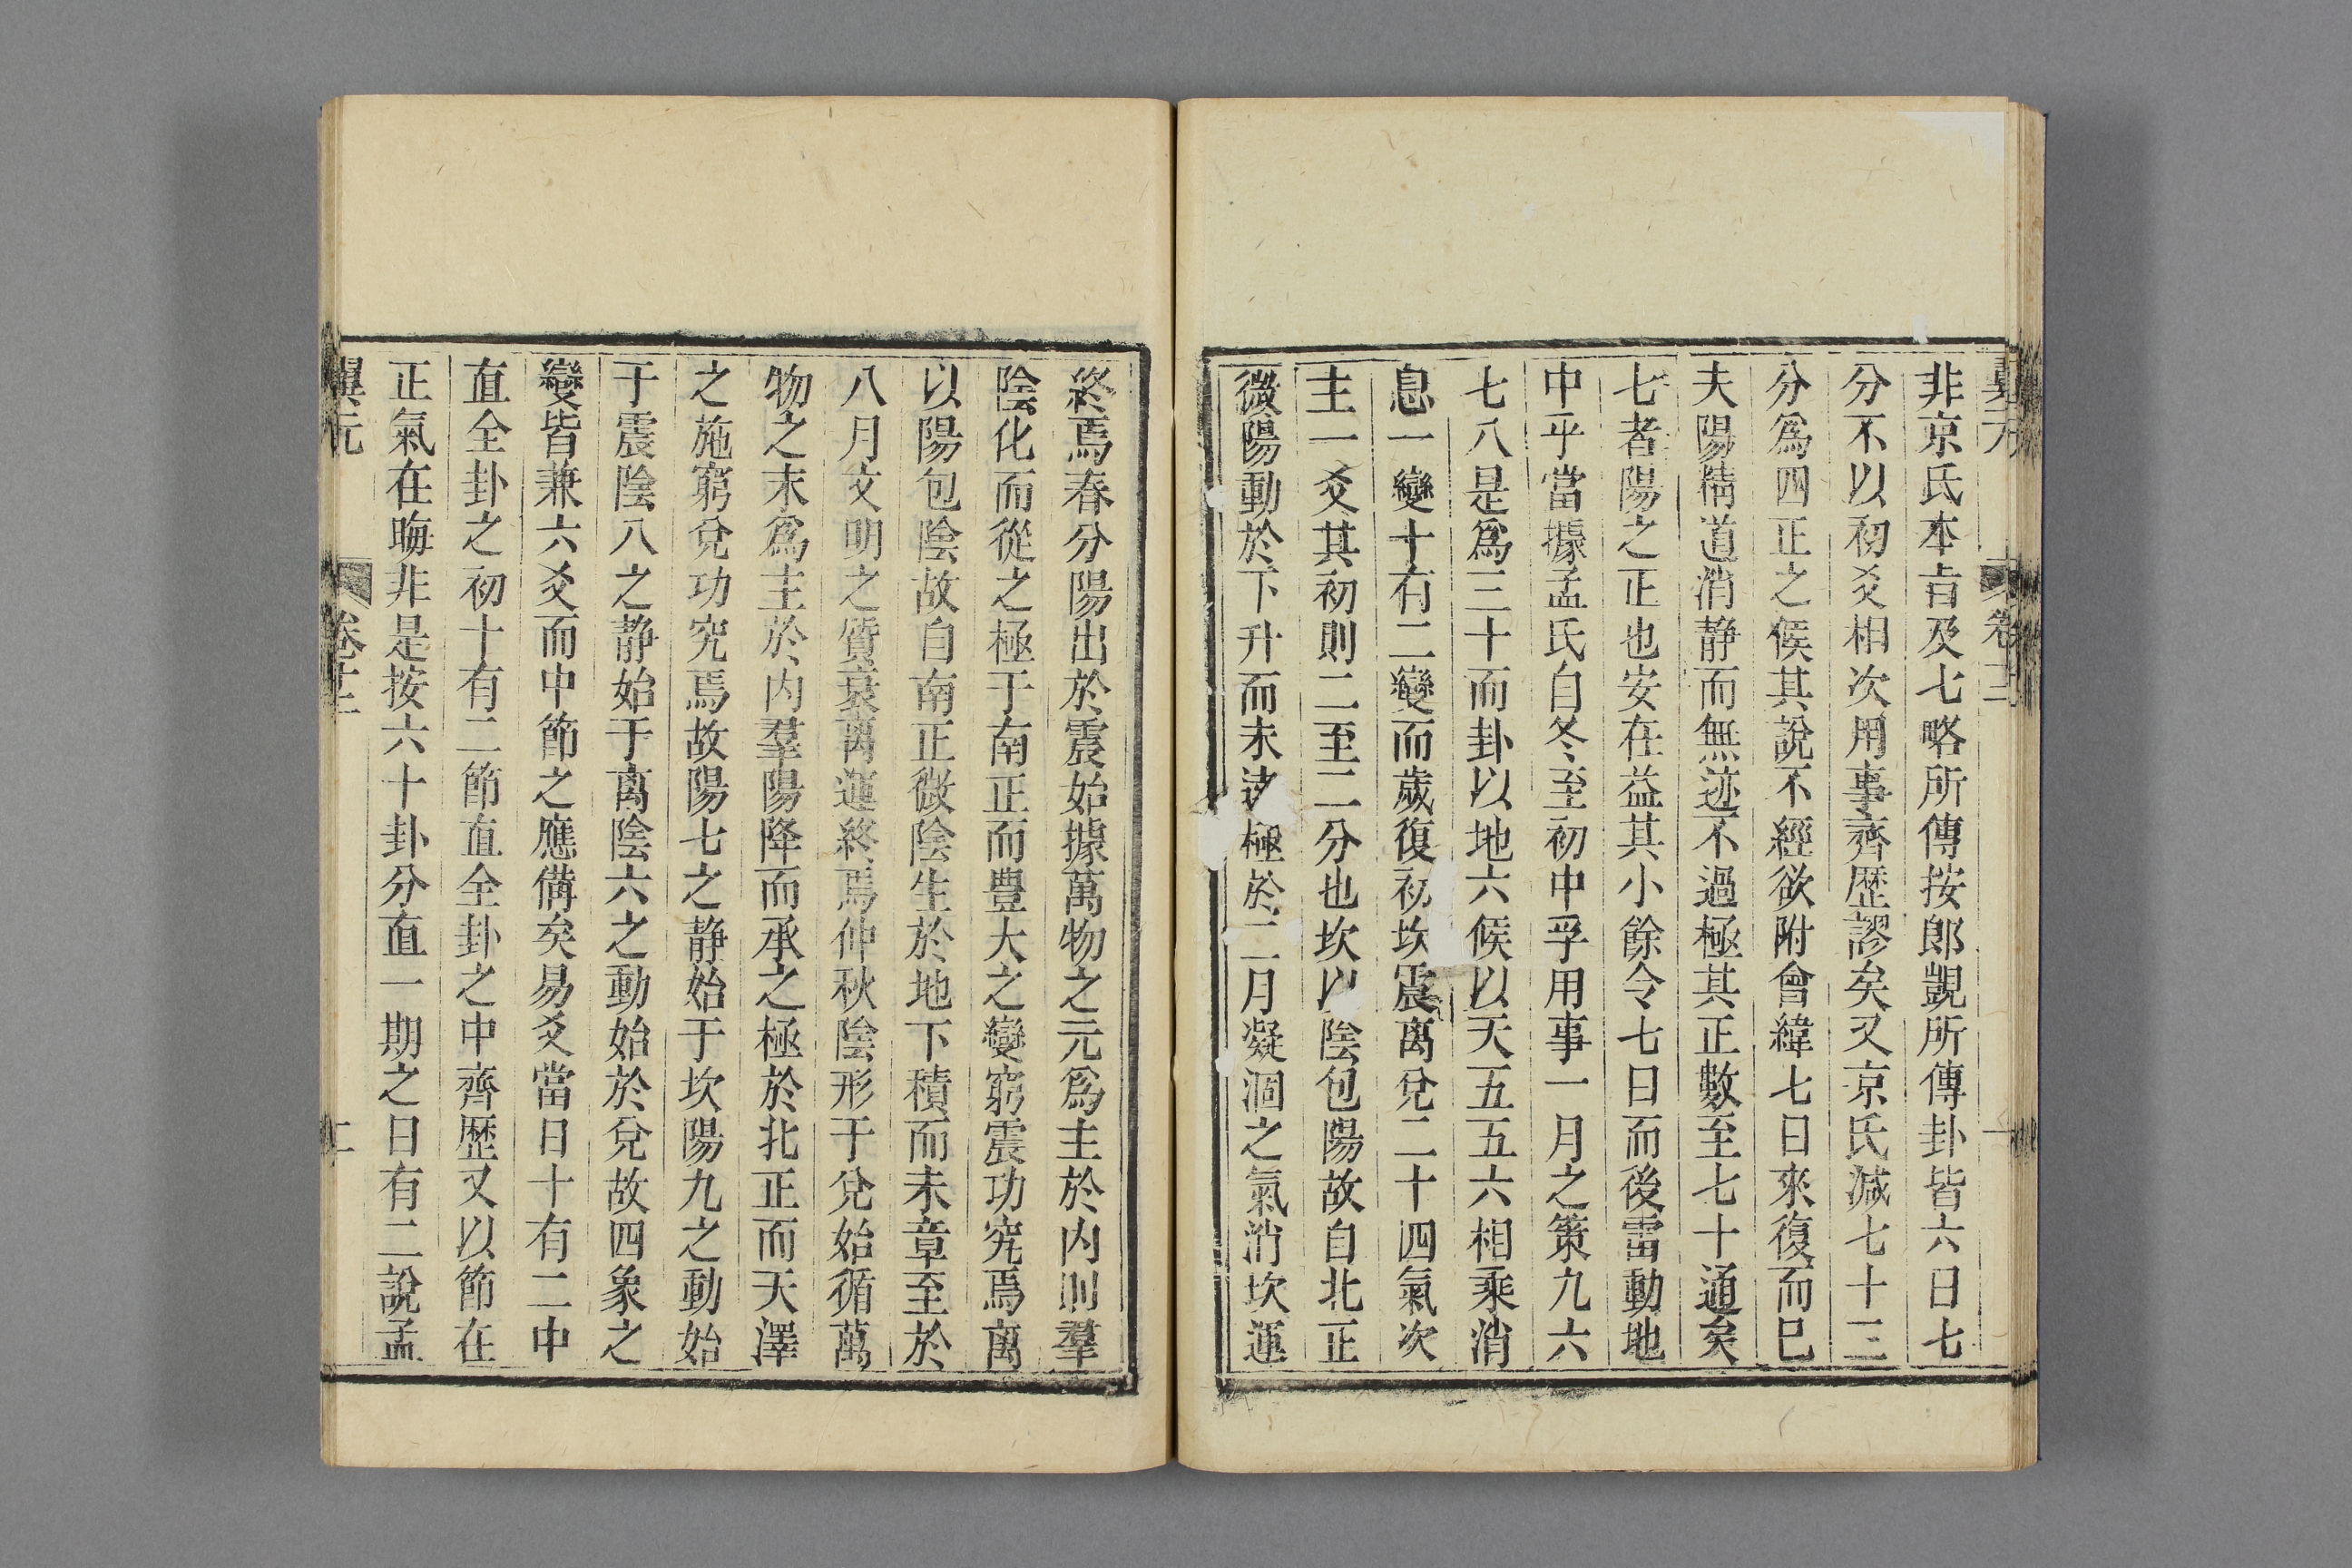 非京氏本㫖及七略所傳按郎覬所傳卦皆六日七
分不以初爻相次用事齊歴謬矣又京氏減七十三
分爲四正之候其說不經欲附會緯七日來復而巳
夫陽精道消静而無迹不過極其正數至七十通矣
七者陽之正也安在益其小餘令七日而後雷動地
中乎當據孟氏自冬至初中孚用事一月之策九六
七八是爲三十而卦以地六候以天五五六相乘消
息一變十有二變而歲復初坎震离兌二十四氣次
主一爻其初則二至二分也坎以陰包陽故自北正
微陽動於下升而未達極於二月凝涸之氣消坎運
終焉春分陽出於震始據萬物之元爲主於内則羣
陰化而從之極于南正而豊大之變窮震功究焉离
以陽包陰故自南正微陰生於地下積而未章至於
八月文明之質衰离運終焉仲秋陰形于兌始循萬
物之末爲主於内羣陽降而承之極於北正而天澤
之施窮兌功究焉故陽七之静始于坎陽九之動始
于震陰八之静始于离陰六之動始於兌故四象之
變皆兼六爻而中節之應備矣易爻當日十有二中
直全卦之初十有二節直全卦之中齊歴又以節在
正氣在晦非是按六十卦分直一期之日有二說孟
翼元 卷十二 二